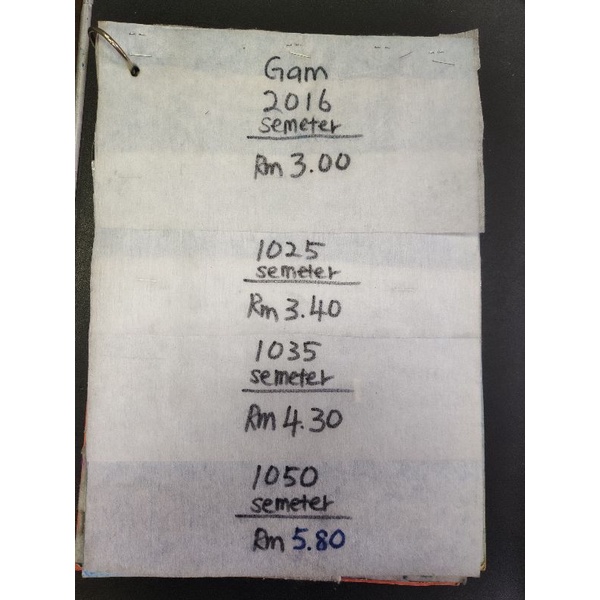 Gam
2016
semeter
Rm 3.00
1025
semeter
Rm 3.40
1035
semeter
Rm 4.30
1050
semeter
Rm 5.80